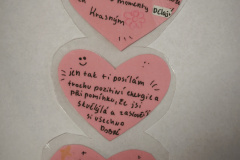 momenty
Krásným
jen tak ti posílám
trochu pozitivní energie a
připomínku, že jsi
skvělý/á a zasloužíš
si všechno
Dobré